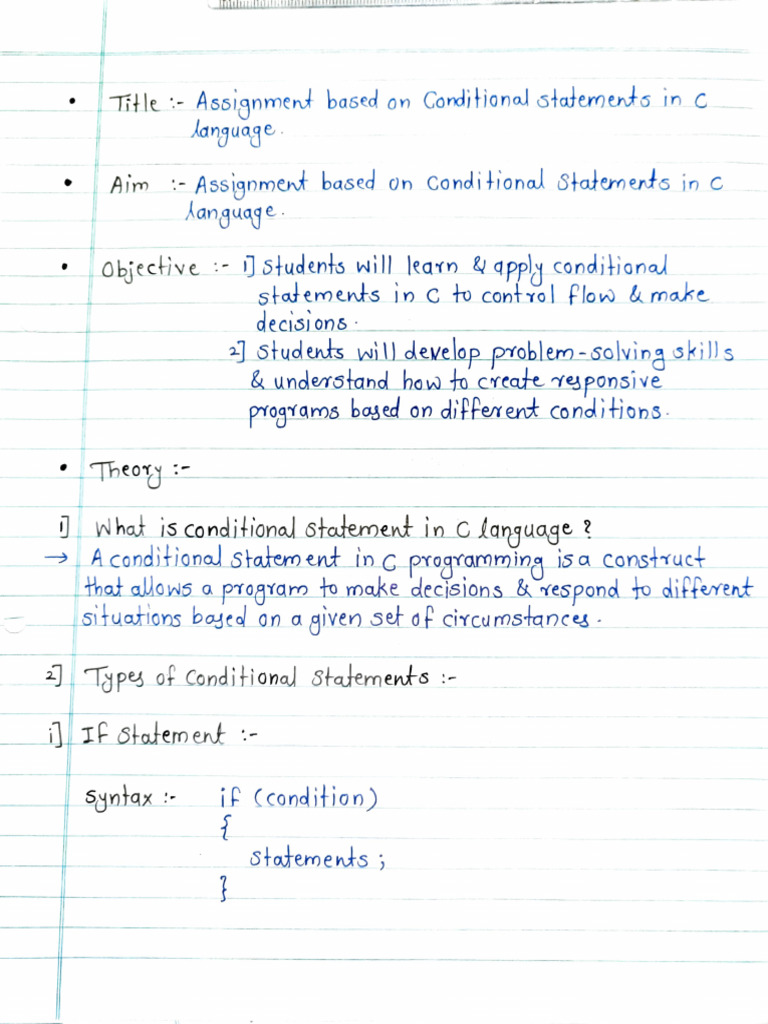 • Title :- Assignment based on Conditional statements in C
language.
• Aim :- Assignment based on Conditional Statements in C
language.
• Objective :- 1] Students will learn & apply conditional
statements in C to control flow & make
decisions.
2] Students will develop problem-solving skills
& understand how to create responsive
programs based on different conditions.
• Theory :-
1] What is conditional statement in C language ?
→ A conditional statement in C programming is a construct
that allows a program to make decisions & respond to different
situations based on a given set of circumstances.
2] Types of Conditional Statements :-
i] If Statement :-
Syntax :- if (condition)
{
statements ;
}